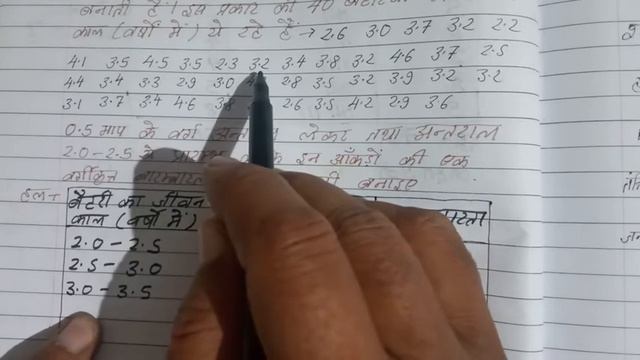 बनाती है। इस प्रकार की 40
काल (वर्षों में) ये रहे हैं → 2.6 3.0 3.7 3.2 2.2
4.1 3.5 4.5 3.5 2.3 3.2 3.4 3.8 3.2 4.6 3.7 2.5
4.4 3.4 3.3 2.9 3.0 2.8 3.5 3.2 3.9 3.2 3.2
3.1 3.7 3.4 4.6 2.6 3.5 4.2 2.9 3.6
0.5 माप के वर्ग लेकर तथा अन्तराल
2.0 - 2.5 से इन आँकड़ों की एक
बनाइए
हल →
बैटरी का जीवन
काल (वर्षों में)
2.0 - 2.5
2.5 - 3.0
3.0 - 3.5